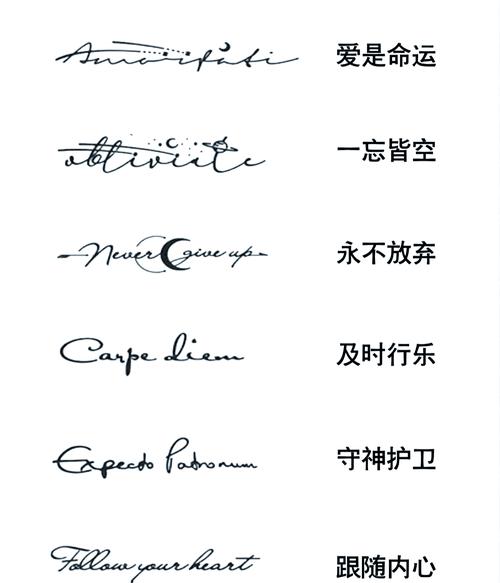 Amor fati 爱是命运
obliviate 一忘皆空
Never give up 永不放弃
Carpe diem 及时行乐
Expecto Patronum 守神护卫
Follow your heart 跟随内心